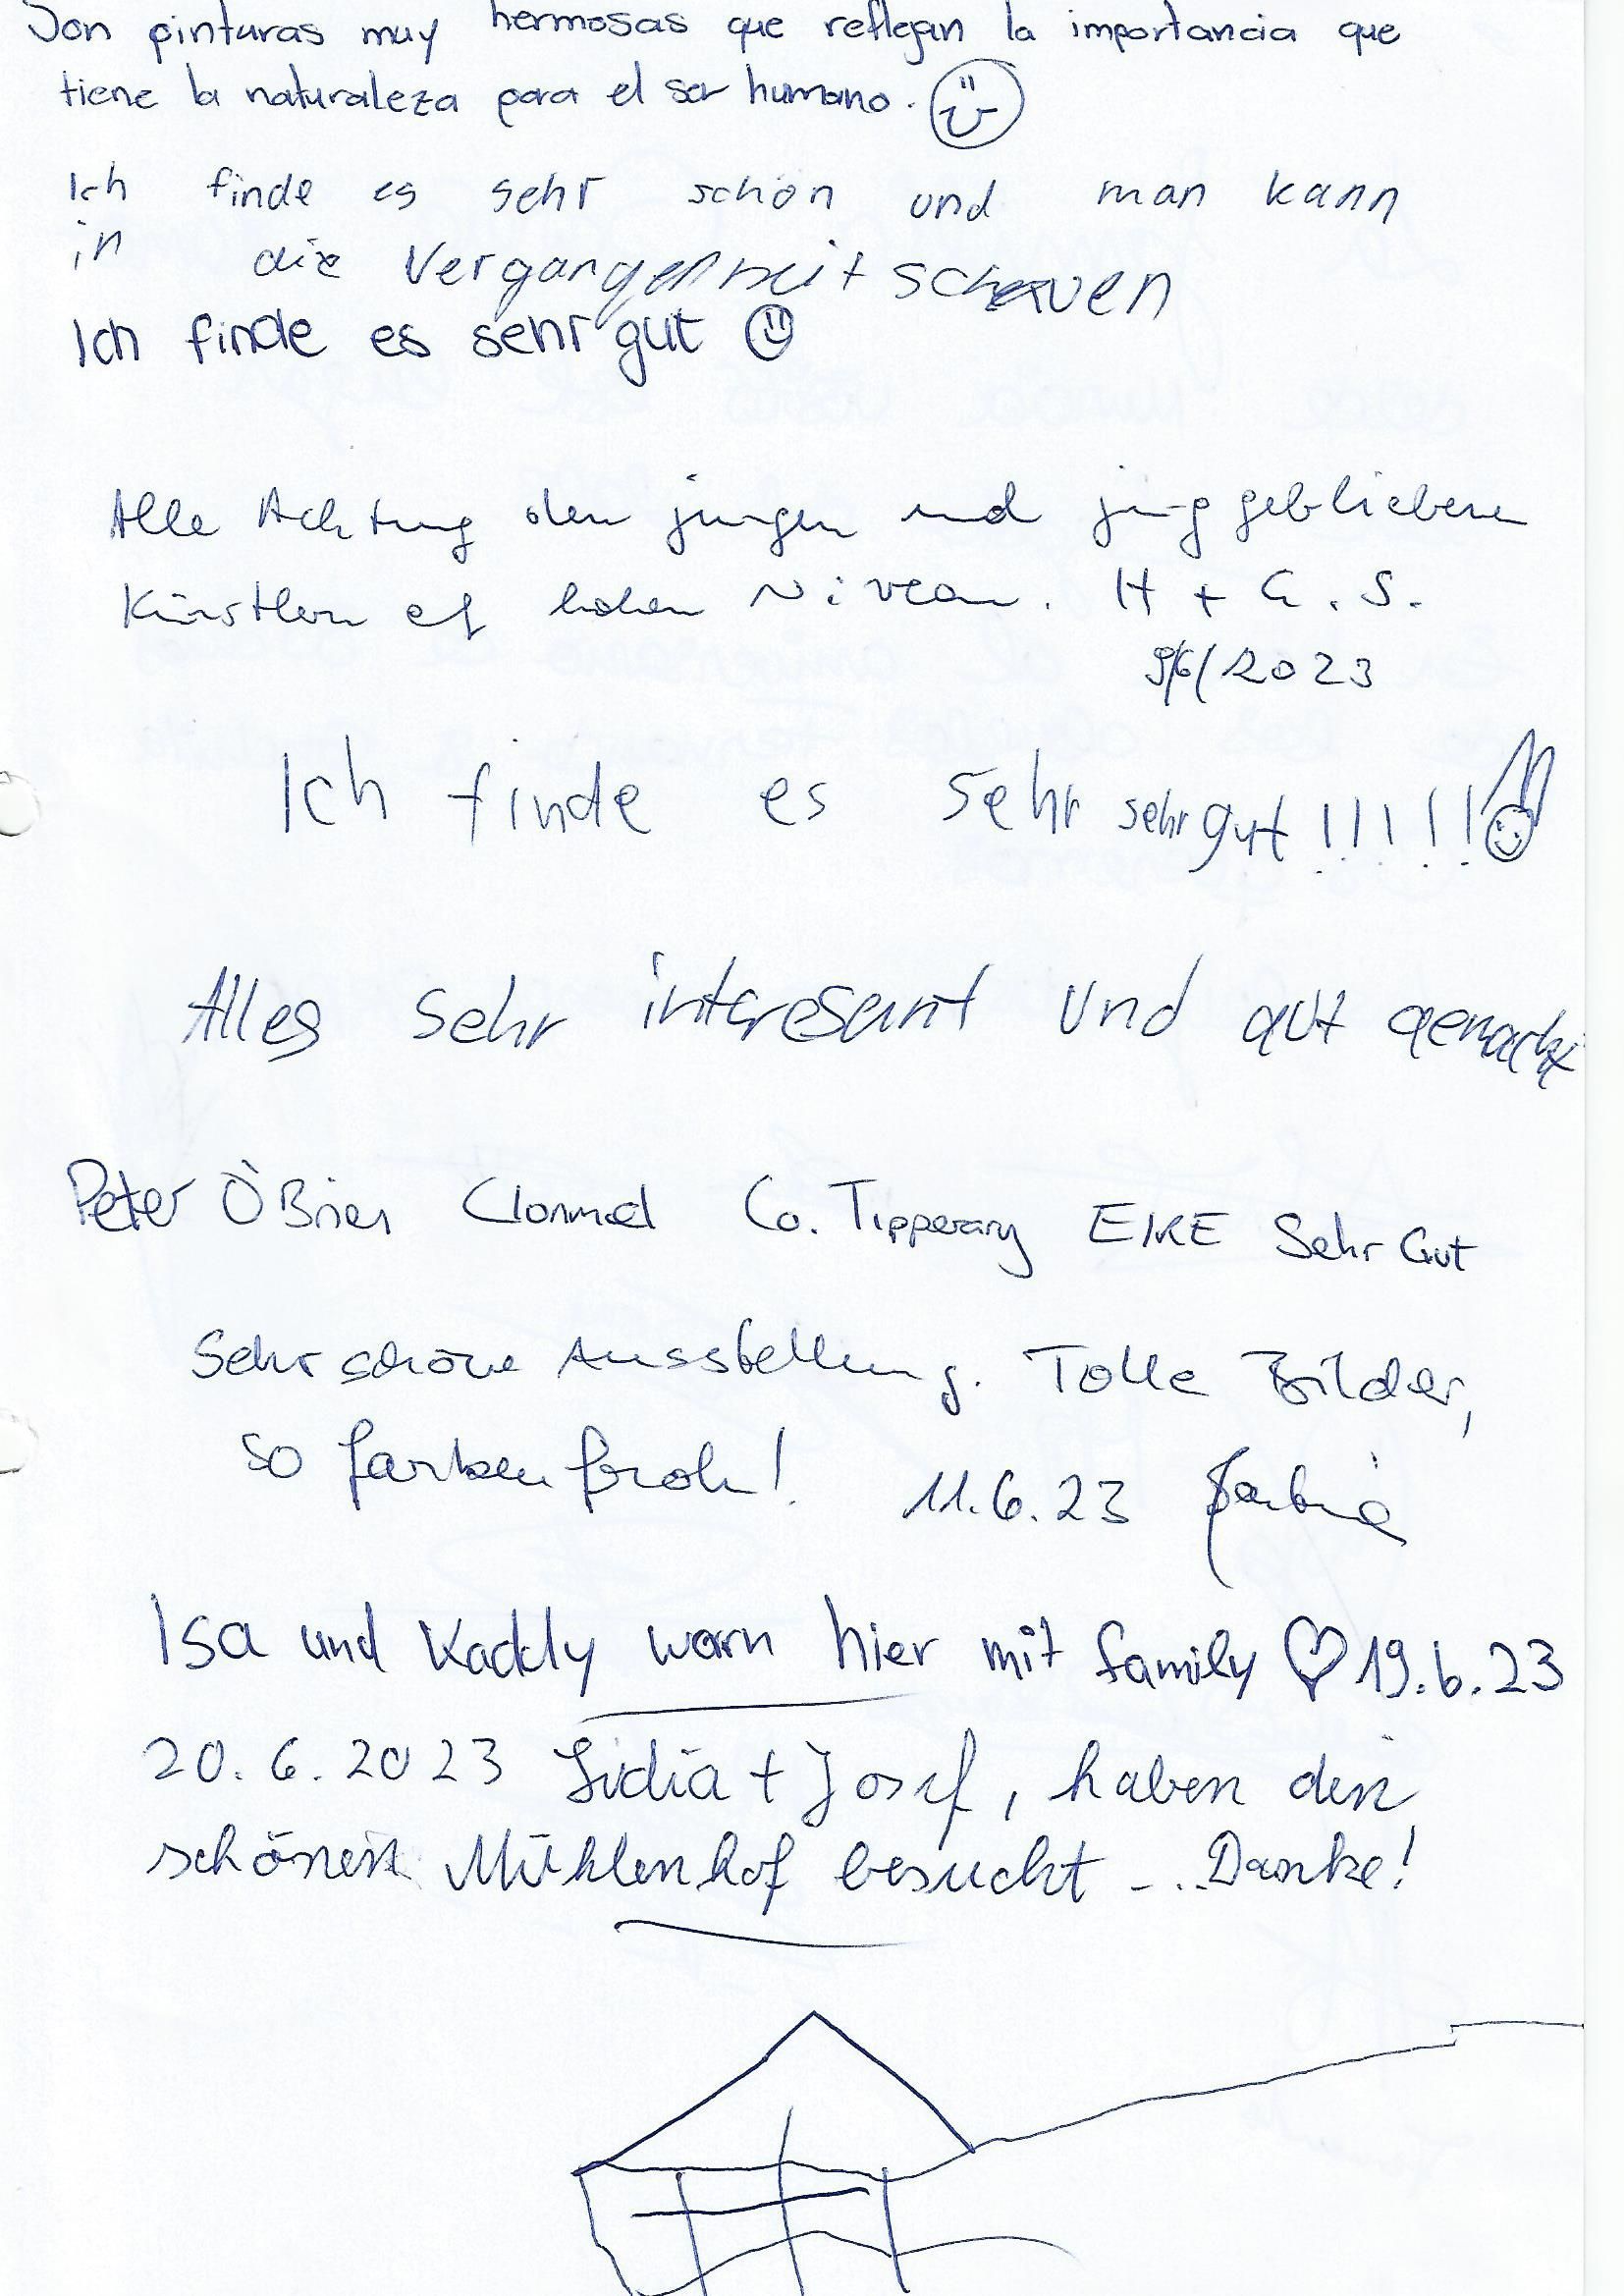 Son pinturas muy hermosas que reflejan la importancia que
tiene la naturaleza para el ser humano.
Ich finde es sehr schön und man kann
in die Vergangenheit schauen
Ich finde es sehr gut
Alle Achtung den jungen und jung gebliebenen
Künstlern auf hohem Niveau. H + G. S.
9/6/2023
Ich finde es sehr sehr gut !!!!!!
Alles sehr interesant und gut gemacht
Peter O'Brien Clonmel Co. Tipperary EIRE Sehr Gut
Sehr schöne Ausstellung. Tolle Bilder,
so farbenfroh! 11.6.23
Isa und Kaddy warn hier mit family ♡ 19.6.23
20.6.2023 Lidia + Josef, haben den
schönen Mühlenhof besucht ... Danke!